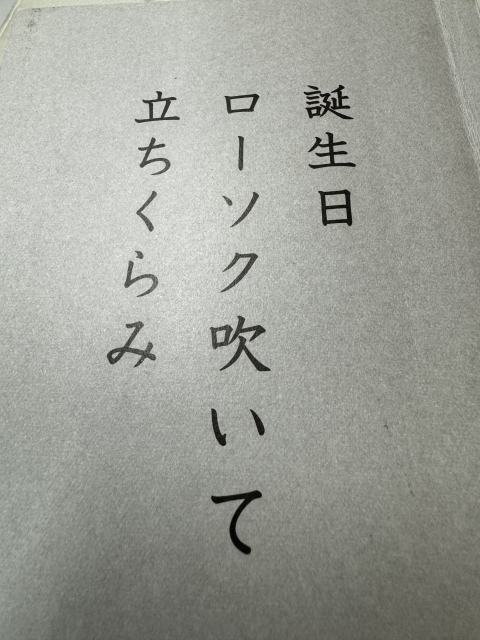 誕生日
ローソク吹いて
立ちくらみ